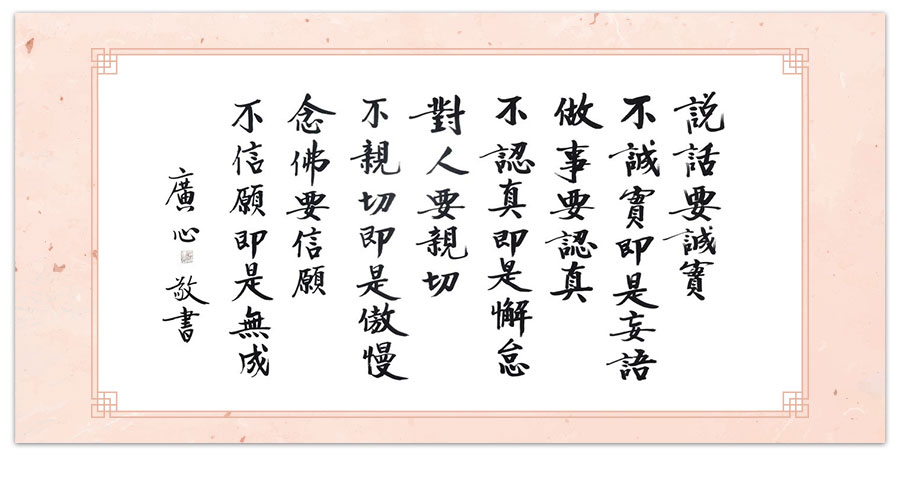 説話要誠實
不誠實即是妄語
做事要認真
不認真即是懈怠
對人要親切
不親切即是傲慢
念佛要信願
不信願即是無成
廣心 敬書